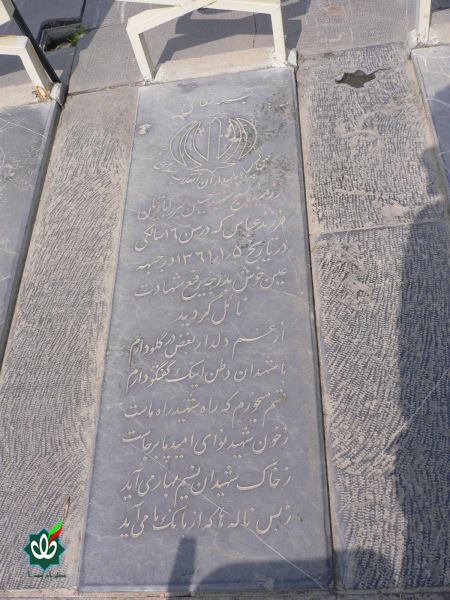 بسمه تعالی
سپاه پاسداران انقلاب
فرزند عباس که در سن ۱۶ سالگی
در تاریخ ۱۳۶۱/۱/۵ در جبهه
عین خوش بدرجه رفیع شهادت
نائل گردید
از غم دلدار بغض در گلو دارم
با شهیدان وطن اینک گفتگو دارم
قسم میخورم که راه شهید راه ماست
زخون شهید نوای امید پا برجاست
زخاک شهیدان نسیم بهاری آید
زبس ناله ها که از بانگ ما می آید